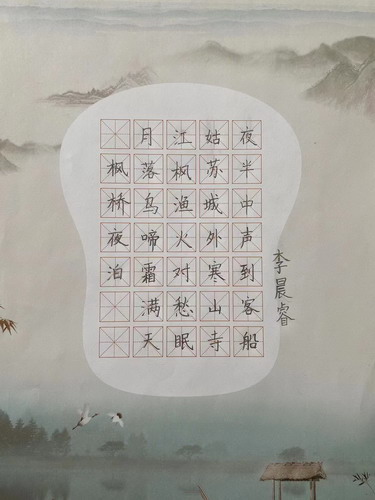 枫桥夜泊
月落乌啼霜满天
江枫渔火对愁眠
姑苏城外寒山寺
夜半中声到客船
李晨睿